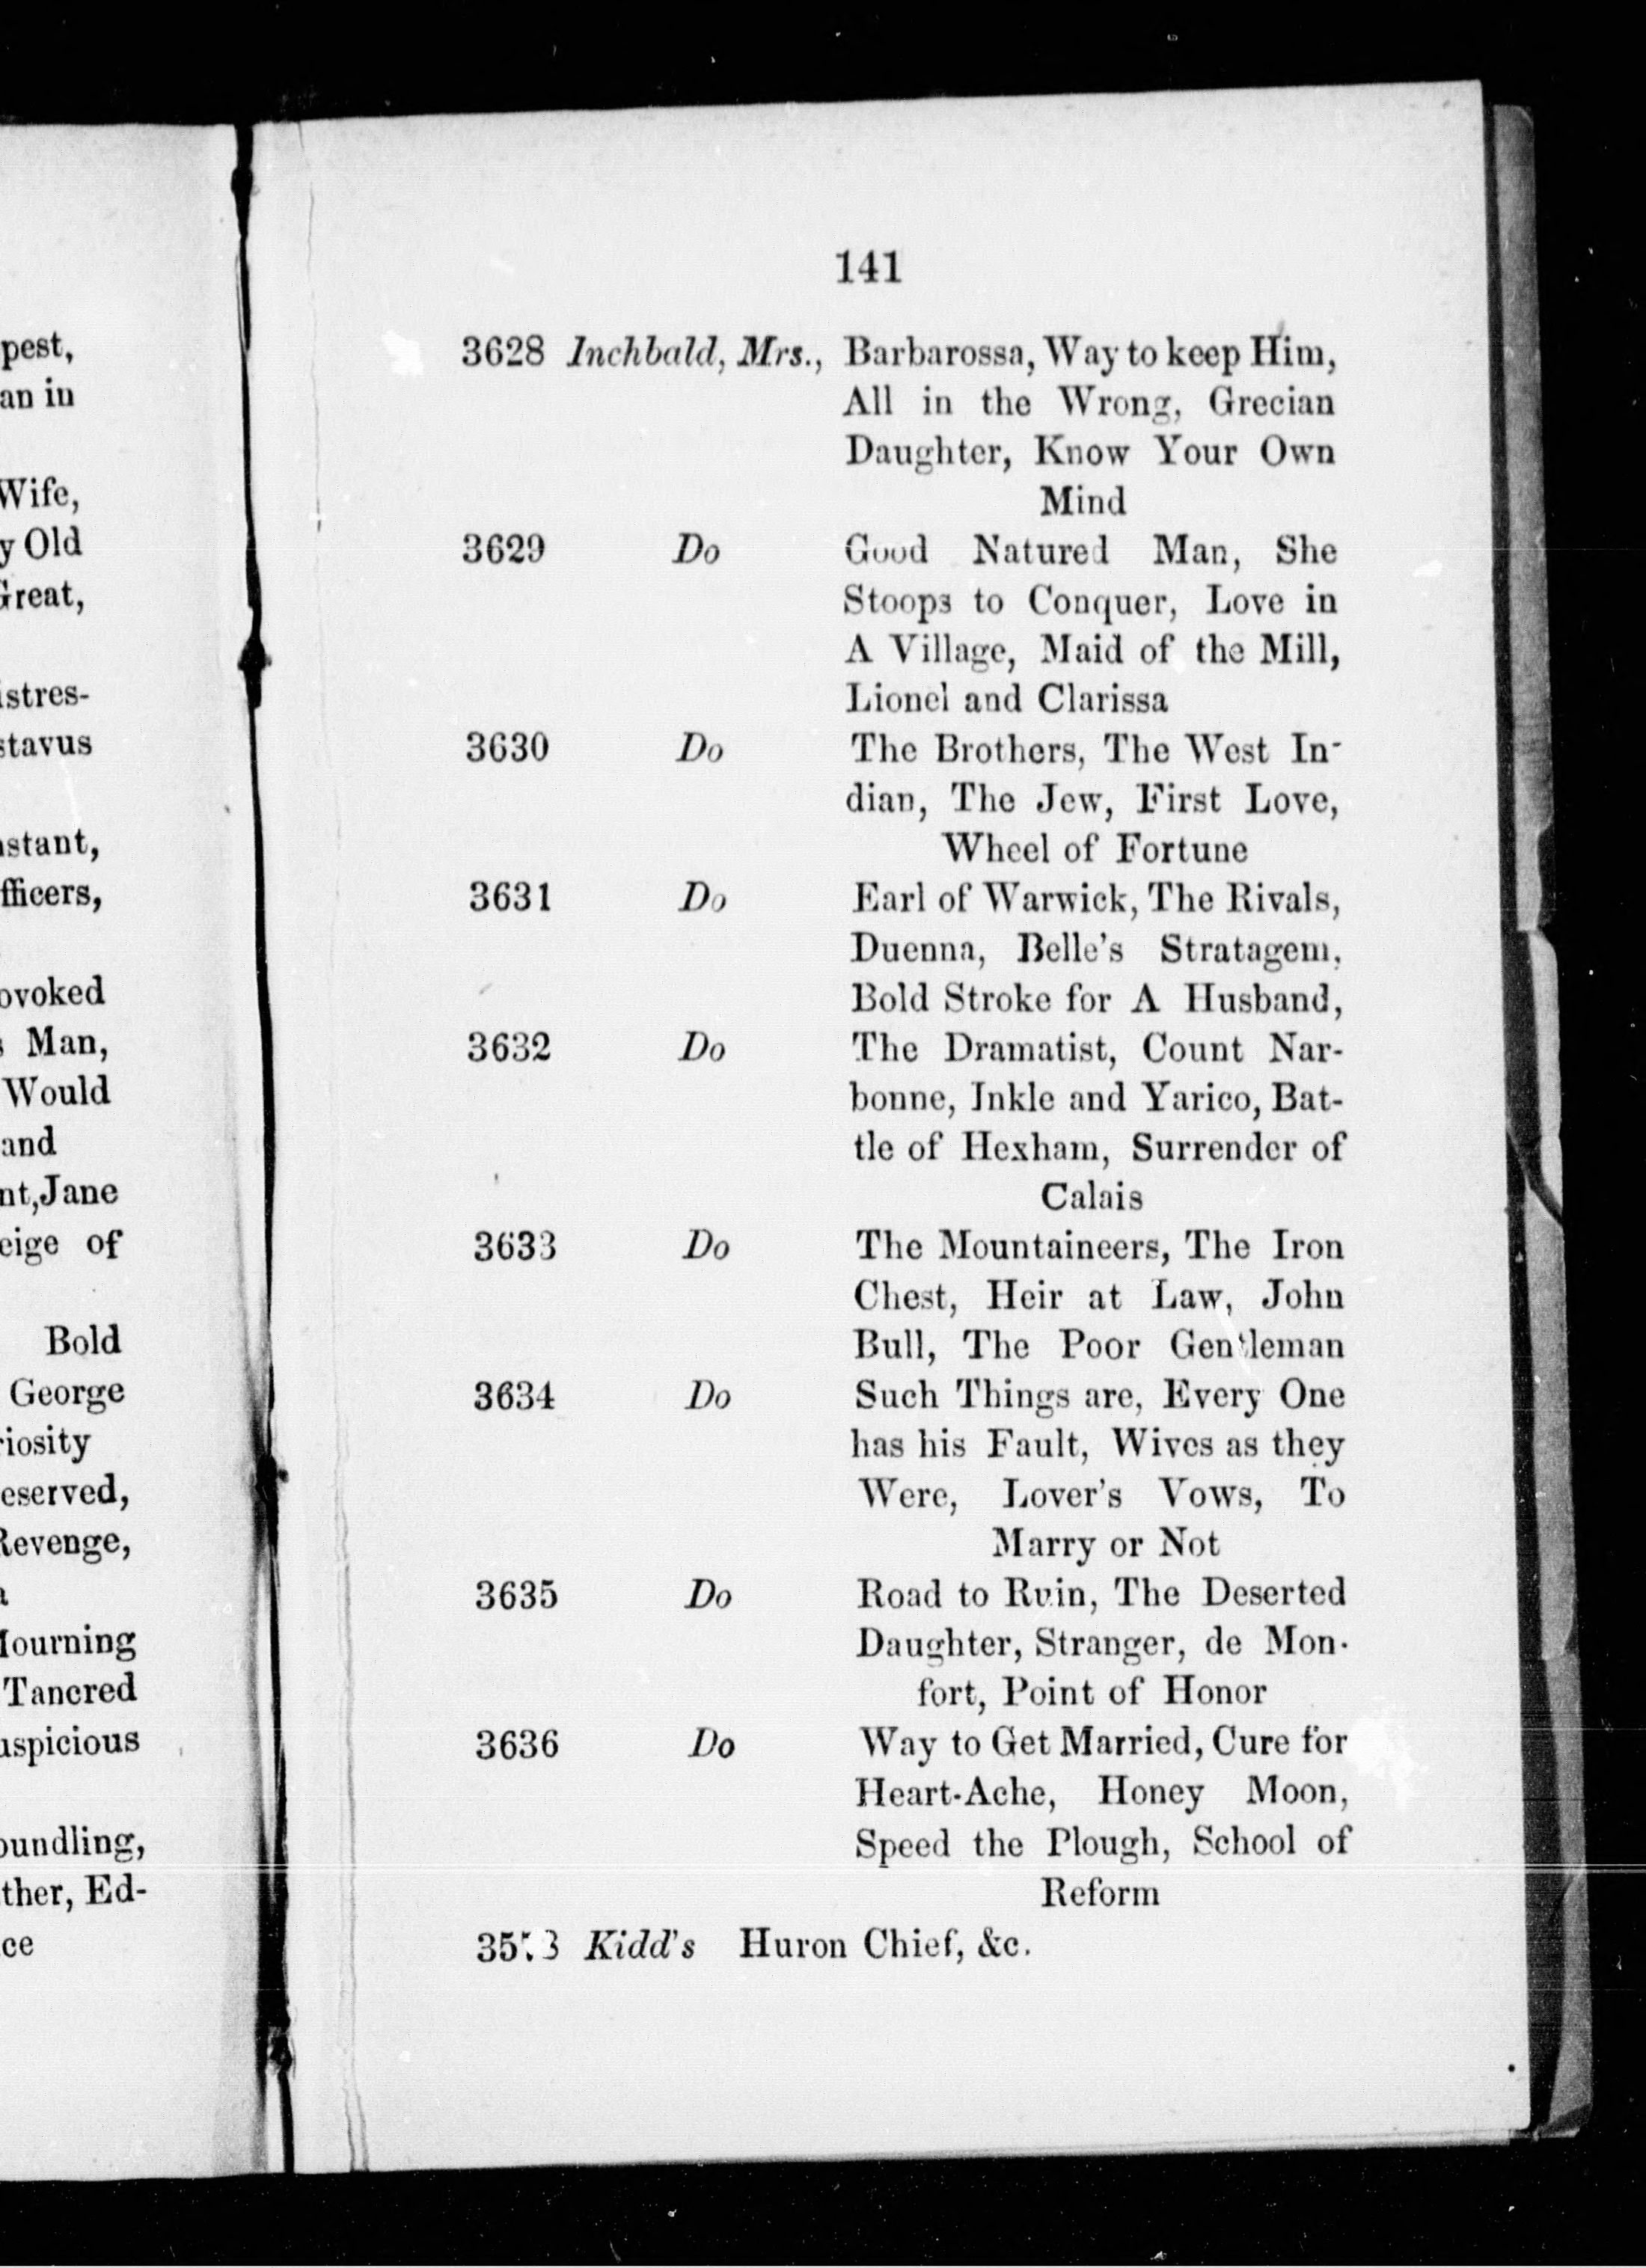 pest,
an in
Wife,
y Old
Great,
istres-
stavus
stant,
fficers,
ovoked
Man,
Would
and
nt,Jane
eige of
Bold
George
riosity
eserved,
Revenge,
a
Mourning
Tancred
uspicious
oundling,
ther, Ed-
ce
141
3628 Inchbald, Mrs., Barbarossa, Way to keep Him,
All in the Wrong, Grecian
Daughter, Know Your Own
Mind
3629 Do Good Natured Man, She
Stoops to Conquer, Love in
A Village, Maid of the Mill,
Lionel and Clarissa
3630 Do The Brothers, The West In-
dian, The Jew, First Love,
Wheel of Fortune
3631 Do Earl of Warwick, The Rivals,
Duenna, Belle's Stratagem,
Bold Stroke for A Husband,
3632 Do The Dramatist, Count Nar-
bonne, Inkle and Yarico, Bat-
tle of Hexham, Surrender of
Calais
3633 Do The Mountaineers, The Iron
Chest, Heir at Law, John
Bull, The Poor Gentleman
3634 Do Such Things are, Every One
has his Fault, Wives as they
Were, Lover's Vows, To
Marry or Not
3635 Do Road to Ruin, The Deserted
Daughter, Stranger, de Mon-
fort, Point of Honor
3636 Do Way to Get Married, Cure for
Heart-Ache, Honey Moon,
Speed the Plough, School of
Reform
Kidd's Huron Chief, &c.